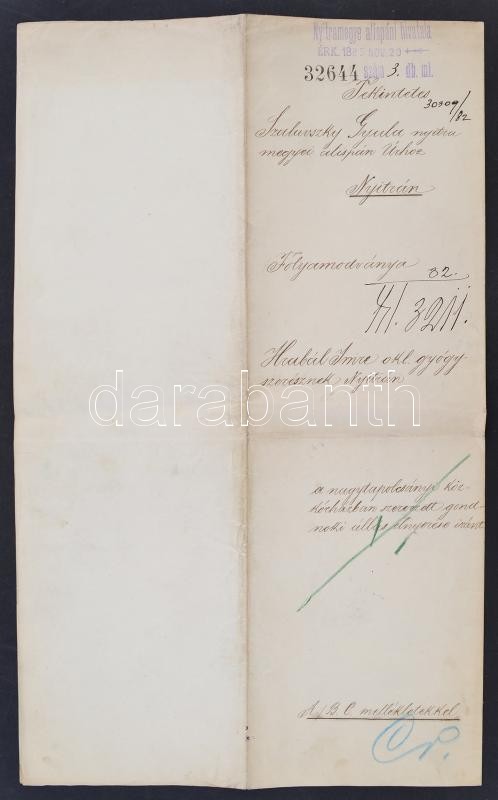 Nyitramegye alispáni hivatala
ÉRK. 1883 NOV. 20
32644 szám 3. db. ml.
Tekintetes
30309/82
Szulavszky Gyula nyitra
megyei alispán Úrhoz
Nyitrán
Folyamodványa
82.
3211.
Hrabál Imre okl. gyógy-
szerésznek Nyitrán
darabanth
a nagytapolcsányi köz-
kórházban szervezett gond-
noki állás elnyerése iránt
A/ B C. mellékletekkel